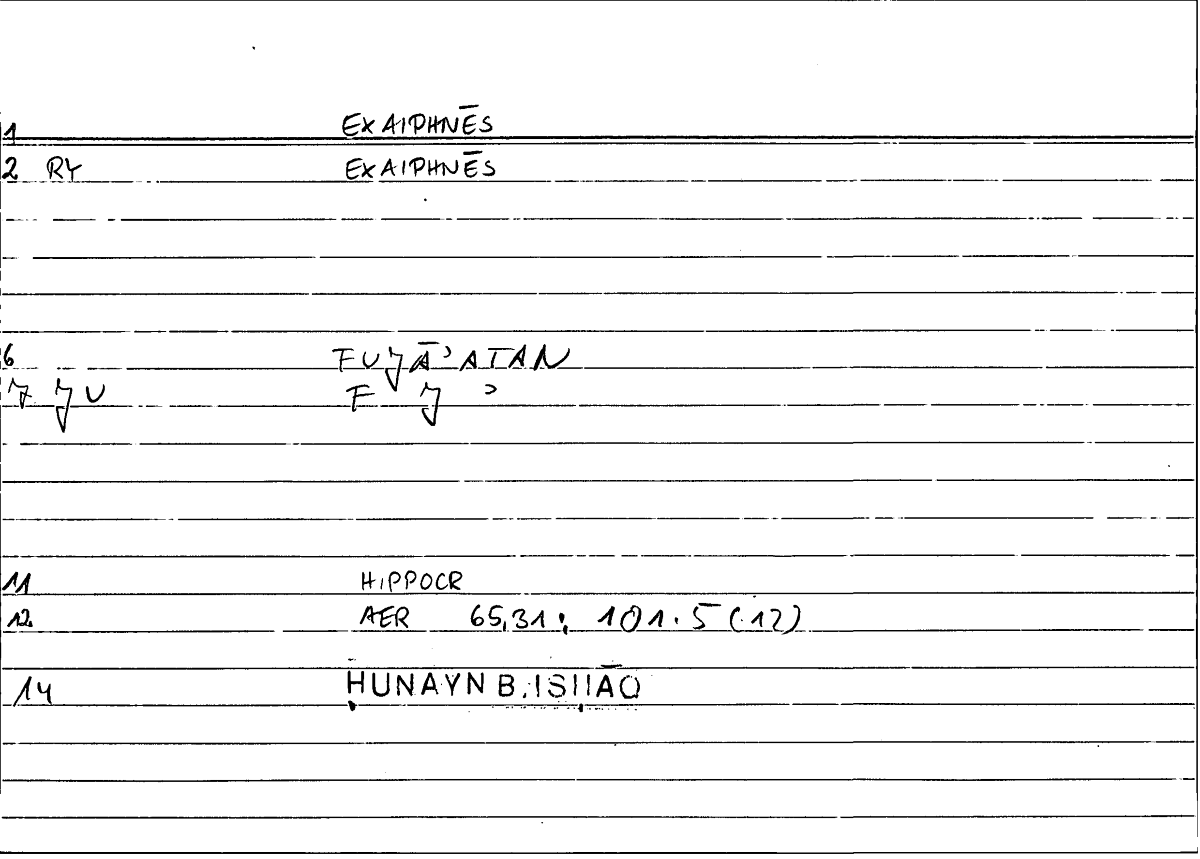 1 EXAIPHNĒS
2 RY EXAIPHNĒS
6 FUJĀʾATAN
7 JU F J ʾ
11 HIPPOCR
12 AER 65,31; 101.5 (12)
14 ḤUNAYN B. ISḤĀQ